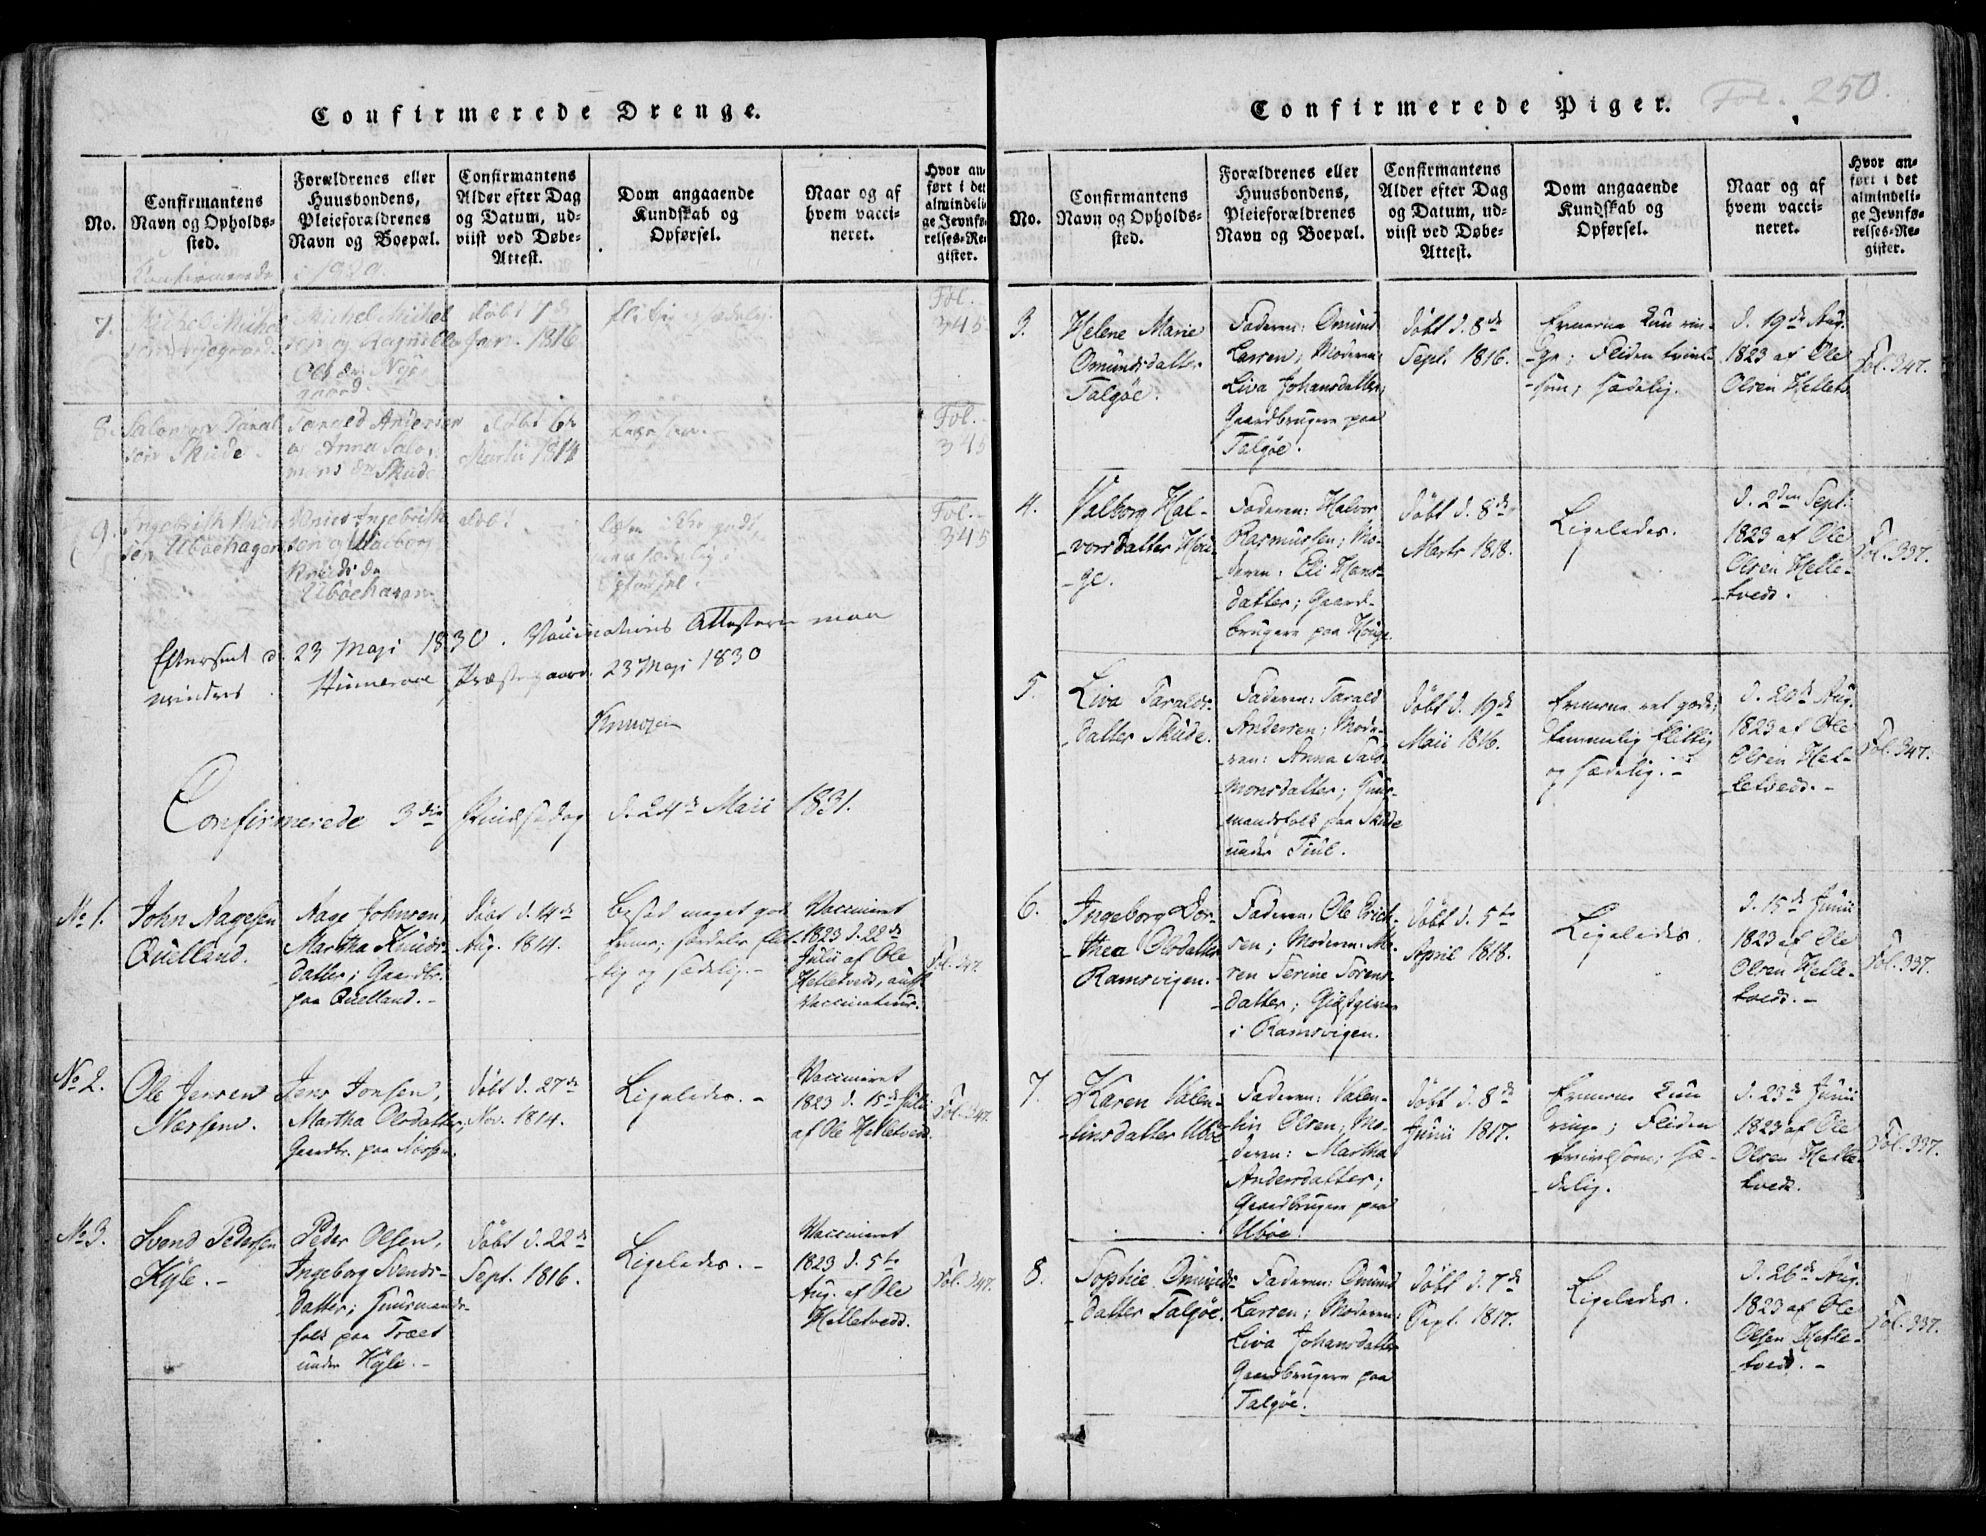 Confirmerede Drenge.
No.
Confirmantens
Navn og Opholds-
sted.
Forældrenes eller
Huusbondens,
Pleieforældrenes
Navn og Boepæl.
Confirmantens
Alder efter Dag
og Datum, ud-
viist ved Døbe-
Attest.
Dom angaaende
Kundskab og
Opførsel.
Naar og af
hvem vacci-
neret.
Hvor an-
ført i det
almindeli-
ge Jevnfø-
relses-Re-
gister.
Confirmerede
7.
Michel Michel
sen
Michel Michel
sen og Ragnille
Døbt 7de
Jan. 1816
Fol.
345
8.
Skude.
Tarald Andersen
og Anna Salo-
mons Dr Skude
Døbt 6te
Martii
Fol.
345
9.
Ingebrigt
sen Uboehagen
Døbt
Fol.
345
Efterseet d. 23 Maji 1830. Vaccinations Attesterne maa
Præstegaard 23 Maji 1830
Confirmerede 3die Pindsedag d. 24de Maii 1831.
No 1.
John Aagesen
Qvelland.
Aage Johnsen,
Martha Knuds-
datter; Gaardbr.
paa Qvelland.-
Døbt d. 14de
Aug. 1814.
Besad meget god
særdeles flit-
tig og sædelig.-
Vaccineret
1823 d. 22de
Julii af Ole
Helletvedd,
Vaccinateur.
Fol. 347.
No 2.
Ole Jensen
Nærsem.
Jens Jonsen,
Martha Olsdatter,
Gaardbr. paa
Døbt d. 27de
Nov. 1814.
Ligeledes.-
Vaccineret
1823 d. 15de Julii
af Ole Helletvedd.
Fol. 347.
No 3.
Svend Pedersen
Kyle.-
Peder Olsen,
Ingeborg Svends-
datter; Huusmands-
folk paa Træet
under Kyle.-
Døbt d. 22de
Sept. 1816.
Ligeledes.-
Vaccineret
1823 d. 5te
Aug. af Ole
Helletvedd.
Fol. 347.
Confirmerede Piger.
Fol. 250.
No.
Confirmantens
Navn og Opholds-
sted.
Forældrenes eller
Huusbondens,
Pleieforældrenes
Navn og Boepæl.
Confirmantens
Alder efter Dag
og Datum, ud-
viist ved Døbe-
Attest.
Dom angaaende
Kundskab og
Opførsel.
Naar og af
hvem vacci-
neret.
Hvor an-
ført i det
almindeli-
ge Jevnfø-
relses-Re-
gister.
3.
Helene Marie
Omundsdatter
Talgøe.
Faderen: Omund
Larsen; Moderen:
Liva Johansdatter;
Gaardbrugere paa
Talgøe.
Døbt d. 8de
Sept. 1816.
Evnerne kun rin-
ge; Fliden tvivl-
som; sædelig.
d. 19de Aug.
1823 af Ole
Olsen Hellets
Fol. 347.
4.
Valborg Hal-
vorsdatter Hou-
ge.
Faderen: Halvor
Rasmussen; Mo-
deren: Eli Hans-
datter; Gaard-
brugere paa Houge.
Døbt d. 8de
Marts 1818.
Ligeledes.
d. 2den Sept.
1823 af Ole
Olsen Helle-
tvedd.
Fol. 337.
5.
Liva Taralds-
datter Skude.
Faderen: Tarald
Andersen; Mode-
ren: Anna Salo-
monsdatter; Huus-
mandsfolk paa Skude
under
Døbt d. 19de
Maii 1816.
Evnerne ret gode;
temmelig flittig
og sædelig.-
d. 20de Aug.
1823 af Ole
Olsen Hel-
letvedd.-
Fol. 347.
6.
Ingeborg Dor-
thea Olsdatter
Ramsvigen.
Faderen: Ole Erich-
sen; Moderen: Ma-
ren Serine Sørens-
datter; Giæstgiver
i Ramsvigen.
Døbt d. 5te
April 1818.
Ligeledes.
d. 15de Junii
1823 af Ole
Olsen Helle-
tvedd.-
Fol. 337.
7.
Karen Valen-
tinsdatter Uboe
Faderen: Valen-
tin Olsen; Mo-
deren: Martha
Andersdatter;
Gaardbrugere paa
Uboe.
Døbt d. 8de
Junii 1817.
Evnerne kun
ringe; Fliden
tvivlsom; sæ-
delig.
d. 23de Junii
1823 af Ole
Olsen Helle-
tvedd.
Fol. 337.
8.
Sophie Omunds-
datter Talgøe.
Faderen: Omund
Larsen; Moderen:
Liva Johansdatter
Gaardbrugere paa
Talgøe.
Døbt d. 7de
Sept. 1817.
Ligeledes.
d. 26de Aug.
1823 af Ole
Olsen Helle-
tvedd.-
Fol. 337.